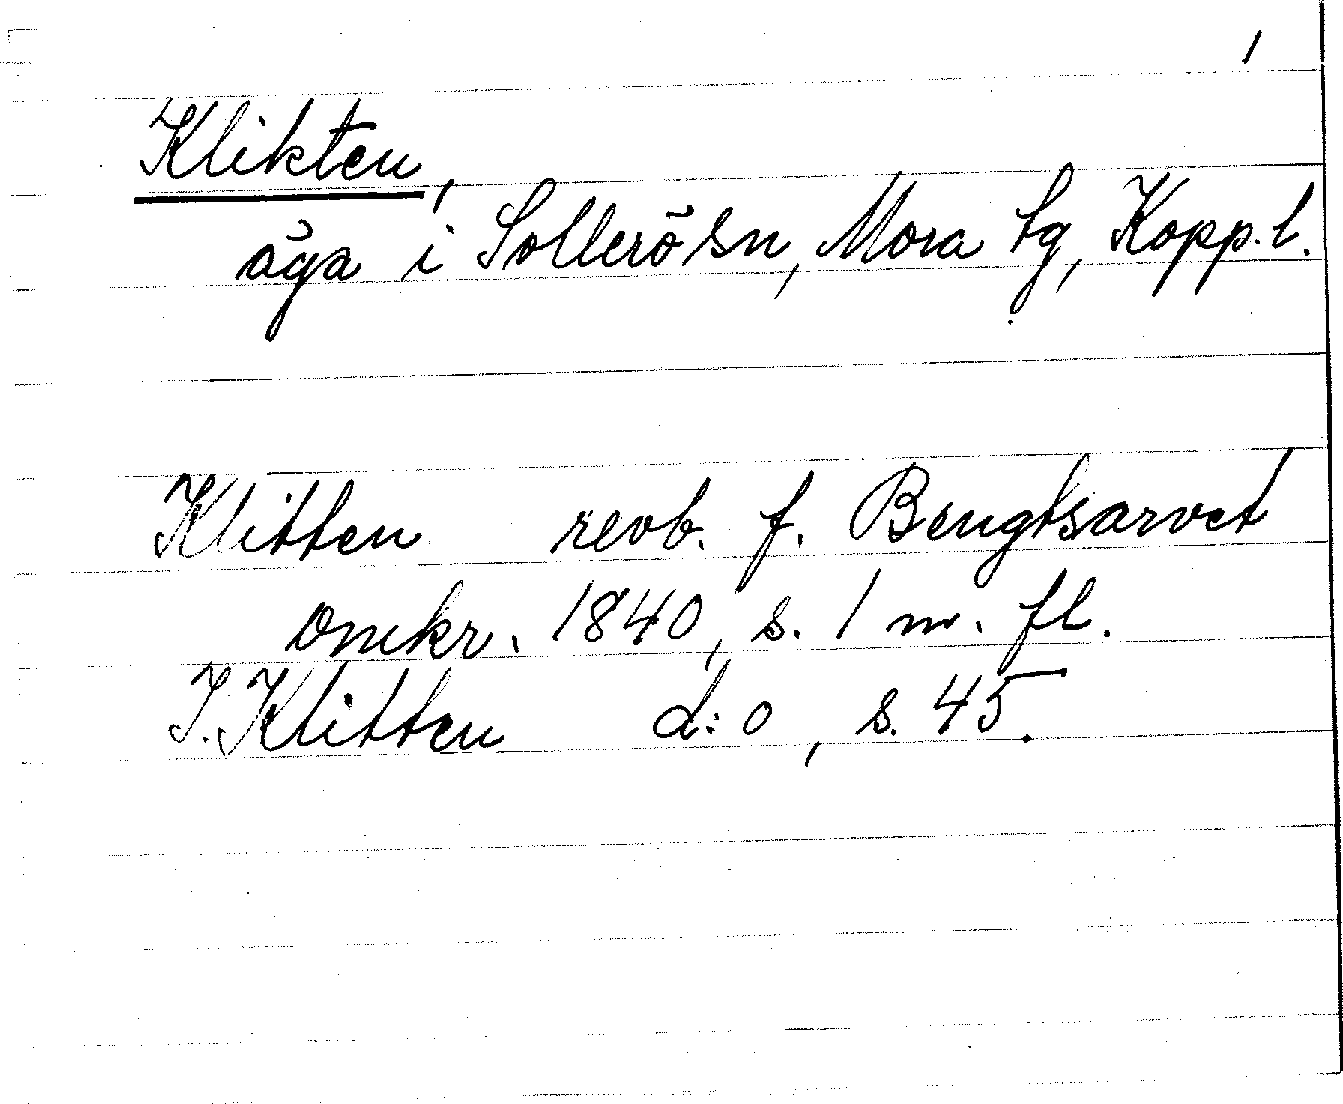 1
Klikten,
äga i Sollerö sn, Mora tg, Kopp. l.
Klitten revb. f. Bengtsarvet
omkr. 1840, s. 1 m. fl.
I. Klitten d:o, s. 45.